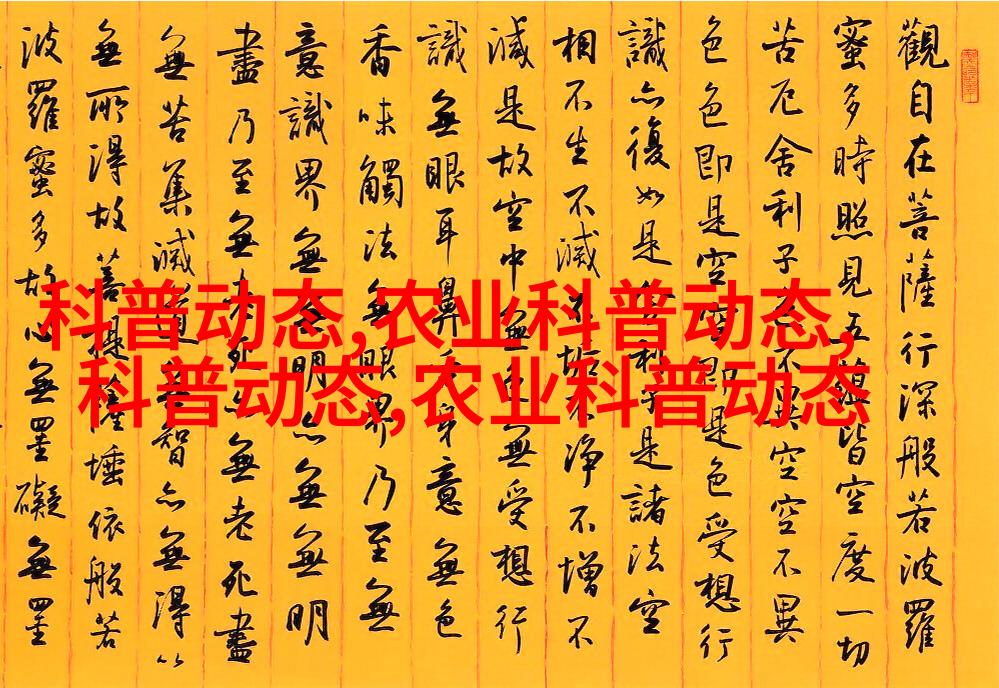 科普动态,农业科普动态,
科普动态,农业科普动态
觀自在菩薩行深般若波羅
蜜多時照見五蘊皆空度一切
苦厄舍利子色不異空空不異
色色即是空空即是色受想行
識亦復如是舍利子是諸法空
相不生不滅不垢不淨不增不
減是故空中無色無受想行
識無眼耳鼻舌身意無色
香味觸法無眼界乃至無
意識界無無明亦無無明
盡乃至無老死亦無老死盡
無苦集滅道無智亦無得以
無所得故菩提薩埵依般若
波羅蜜多故心無罣礙無罣